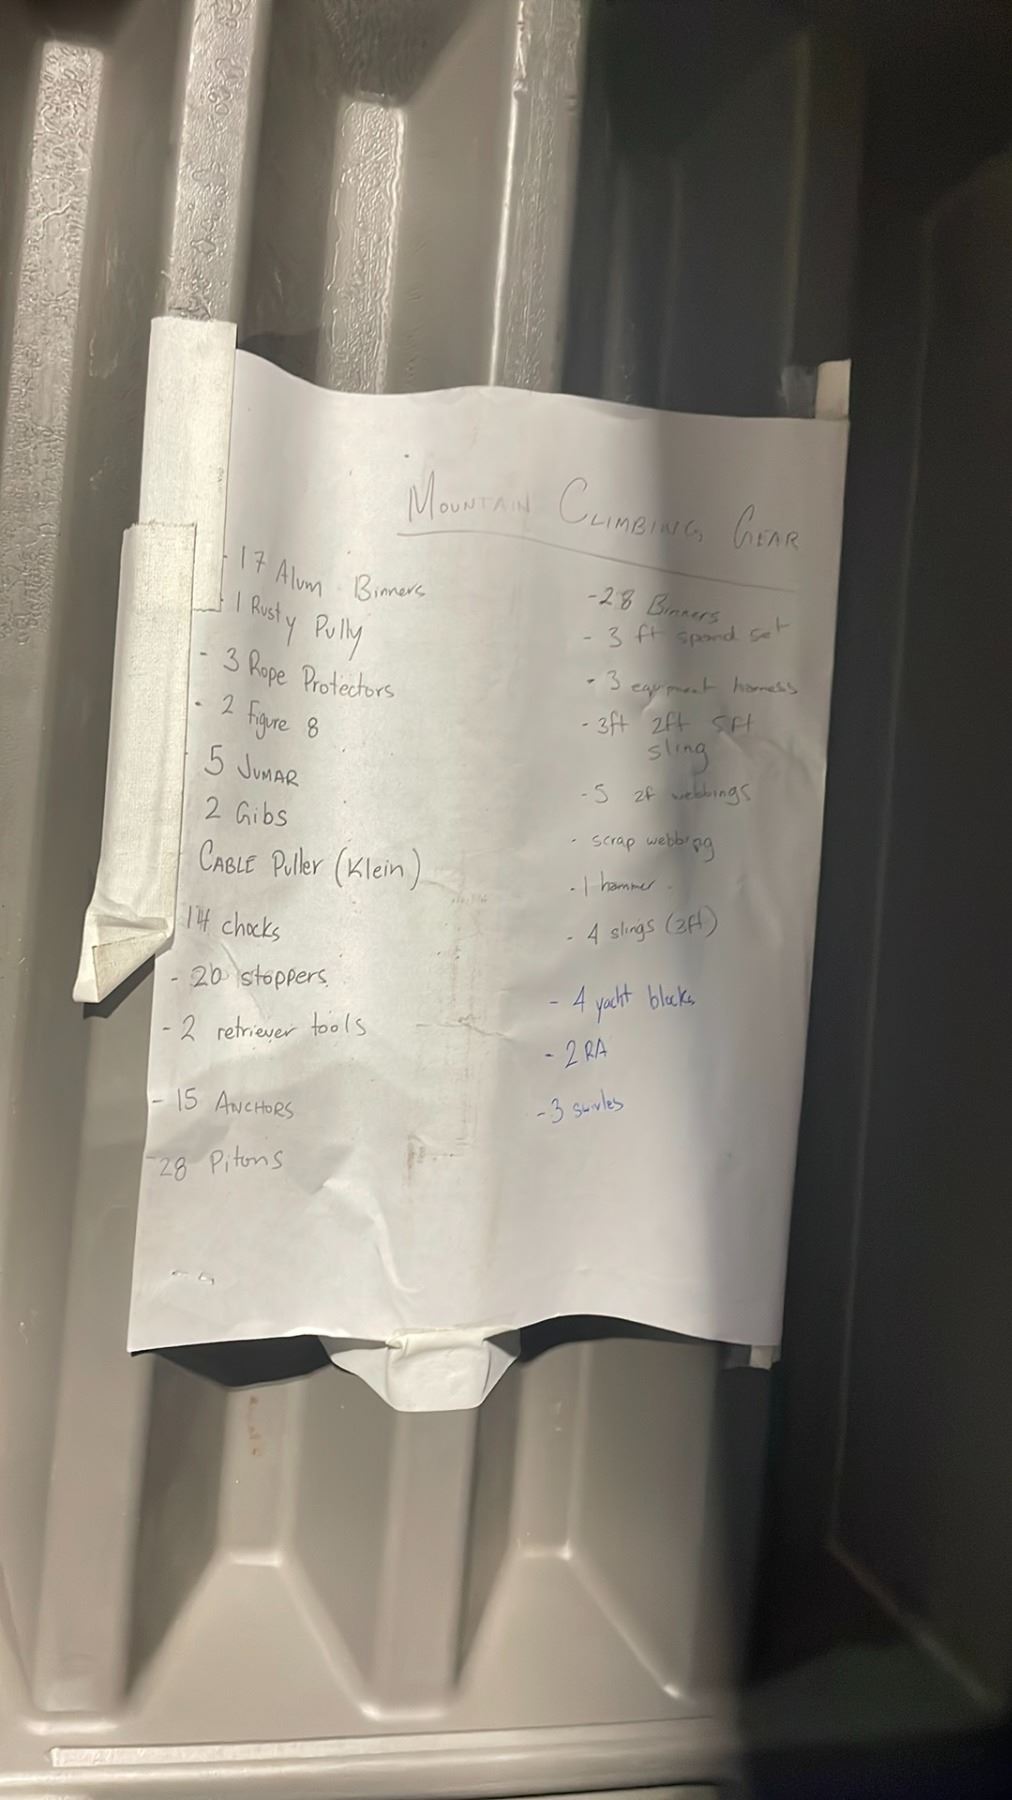 MOUNTAIN CLIMBING GEAR
- 17 Alum Binners
- 1 Rusty Pully
- 3 Rope Protectors
- 2 figure 8
5 JUMAR
2 Gibs
CABLE Puller (Klein)
14 chocks
- 20 stoppers
- 2 retriever tools
- 15 ANCHORS
- 28 Pitons
- 28 Binners
- 3 ft set
- 3 equipment harness
- 3ft 2ft 5ft
sling
- 5 2f webbings
- scrap webbing
- 1 hammer
- 4 slings (3ft)
- 4 yacht blocks
- 2 RA
- 3 swivles